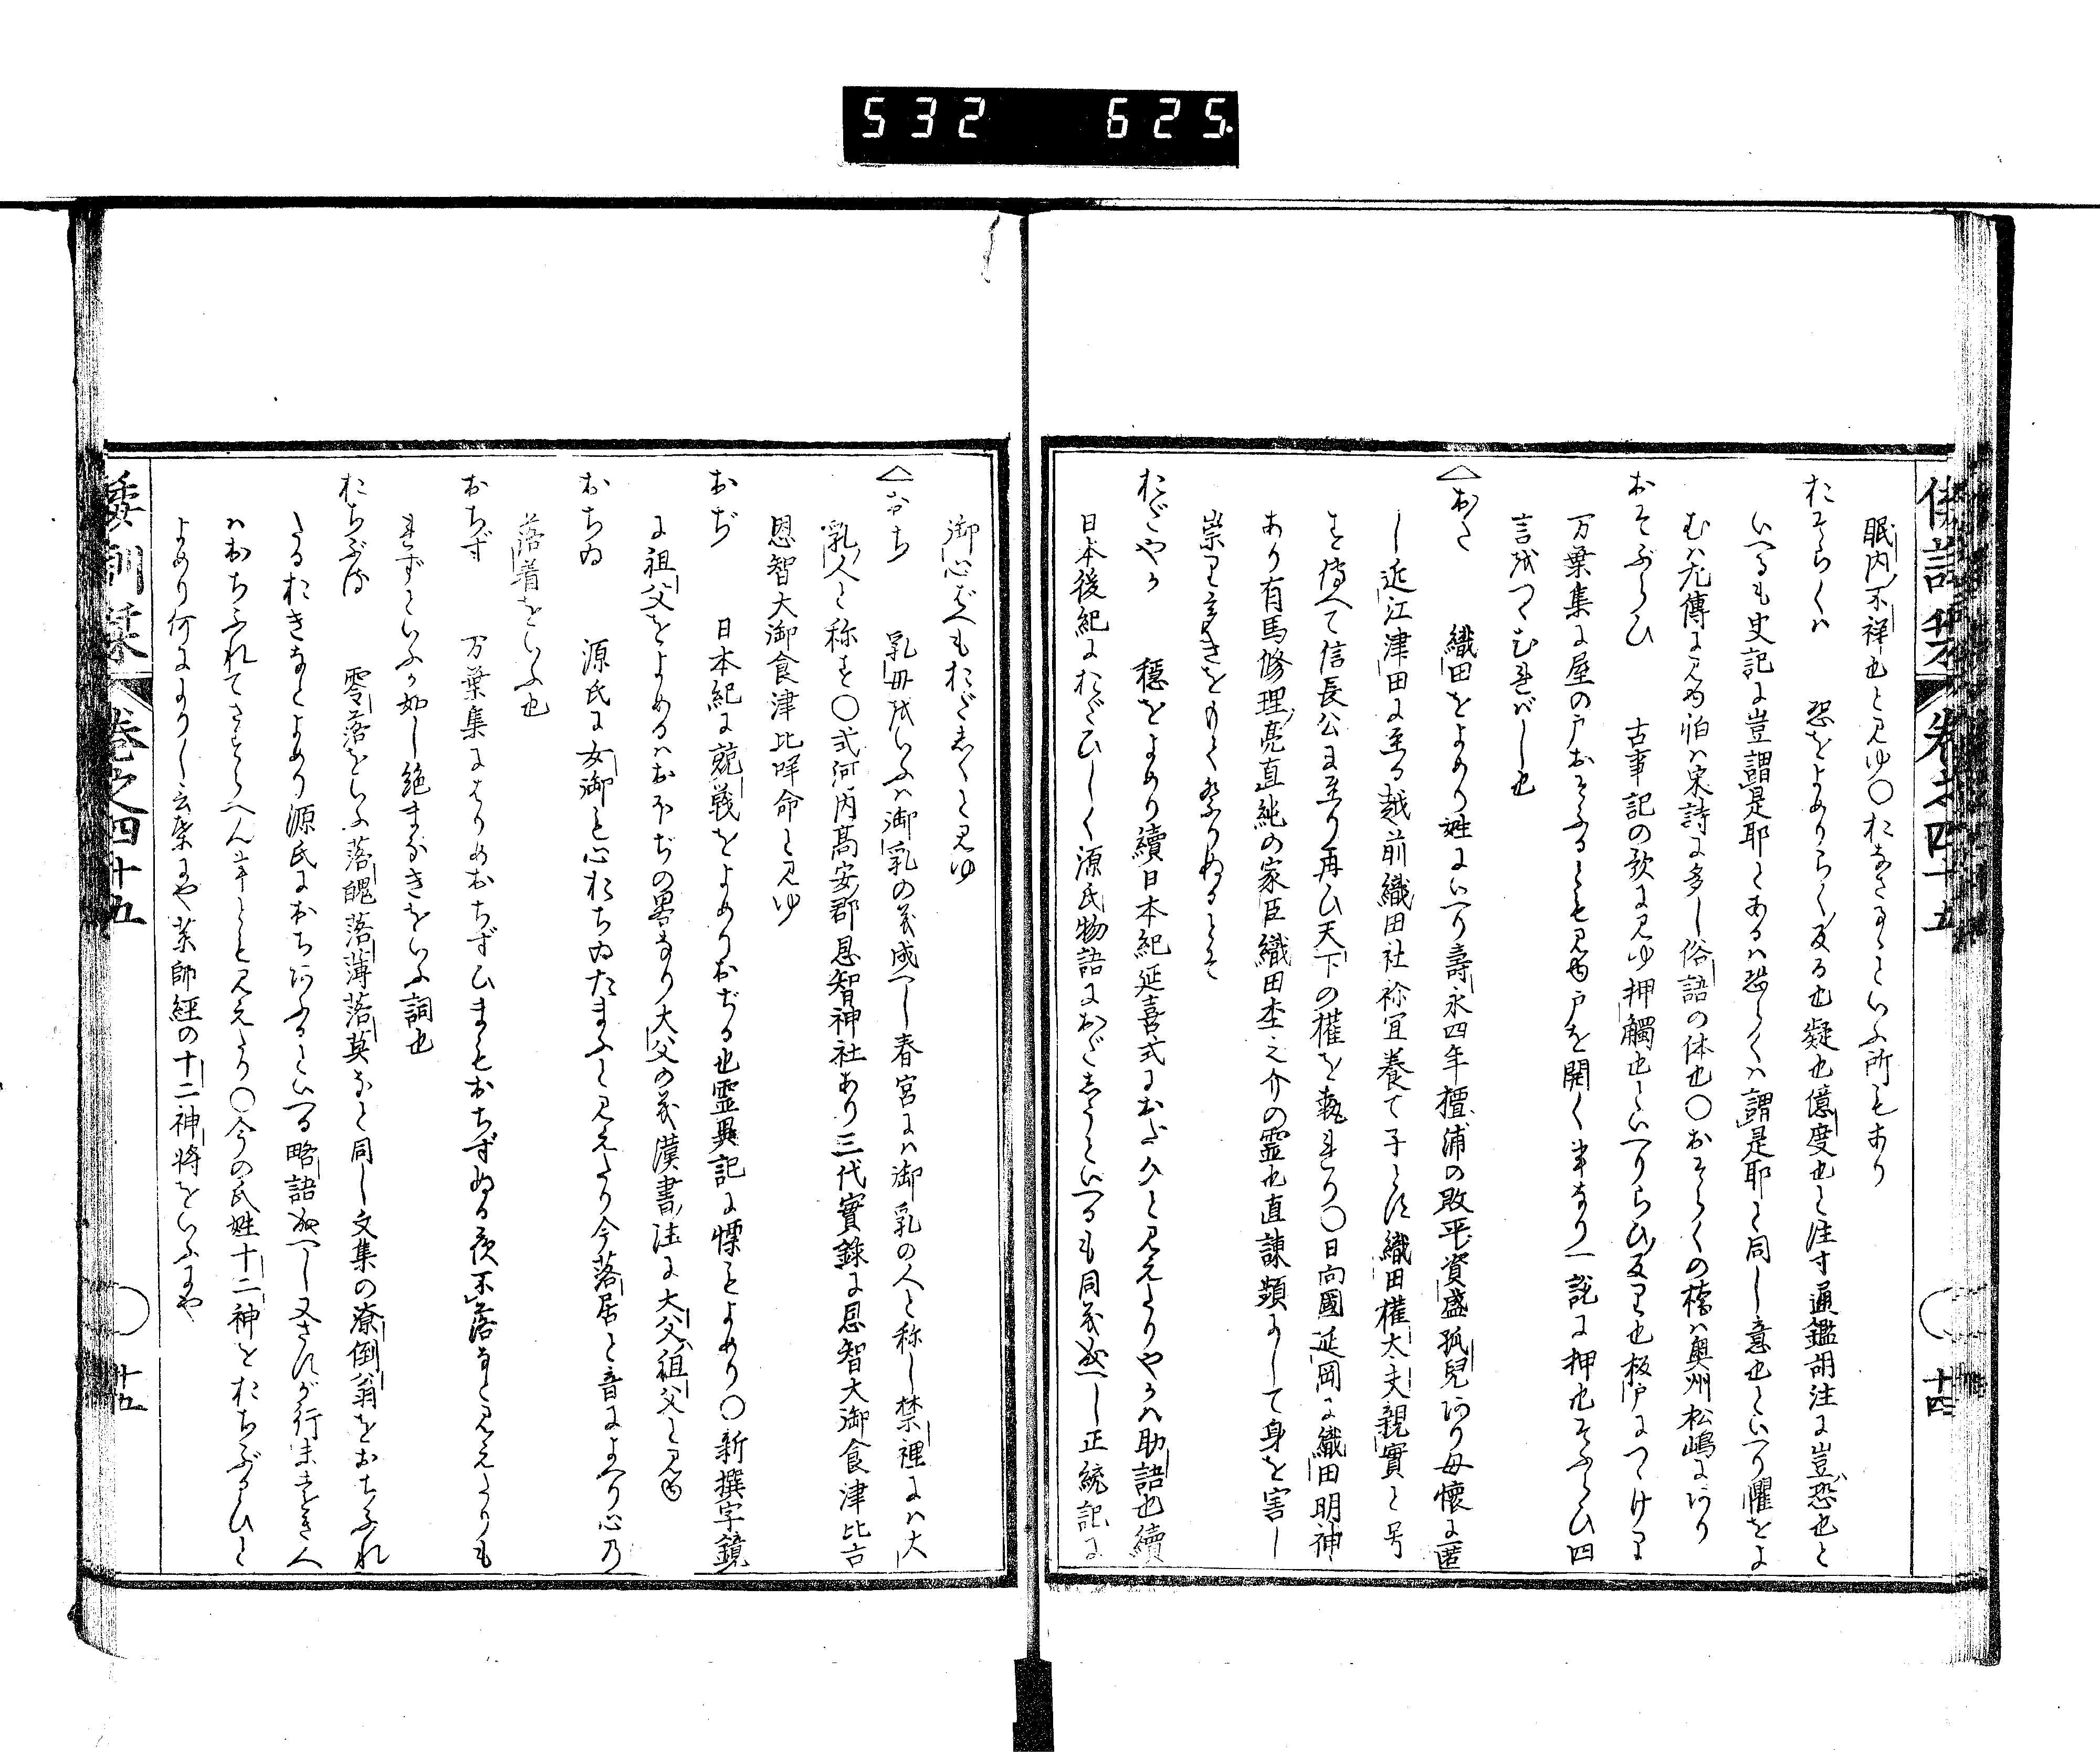 532 625
倭訓栞 巻之四十五 〇 十四
眠内不祥也と見ゆ〇おなさるゝといふ所もあり
おそらくハ 恐をよめりらく反る也疑也億度也と注す通鑑胡注に豈恐也と
いへるも史記に豈謂是耶とあるハ恐らくハ謂是耶と同し意也といへり懼をよ
むハ左傳に見ゆ怕ハ宋詩に多し俗語の体也〇おそらくの橋ハ奥州松嶋にあり
おそぶらひ 古事記の歌に見ゆ押觸也といへりらひ反り也板戸につけり
万葉集に屋の戸おそふるとも見ゆ戸を開く事なり一説に押也そふらひ四
言成つゝむればし也
△おた 織田をよめり姓にいへり壽永四年壇浦の敗平資盛孤兒あり母懐に匿
し近江津田に至る越前織田社祢宜養て子とす織田權大夫親實と号
を傳へて信長公に至り再ひ天下の權を執れり〇日向國延岡に織田明神
あり有馬修理亮直純の家臣織田杢之介の霊也直諌類よして身を害し
崇り高きをもて祭りぬるとそ
おだやか 穏をよめり續日本紀延喜式におたひと見えたりやかハ助語也續
日本後紀におだひしく源氏物語におだしうといへるも同義成へし正統記に
御心ばへもおだしくと見ゆ
△おち 乳母をいふハ御乳の義成へし春宮にハ御乳の人と称し禁裡にハ大
乳人と称す〇式河内髙安郡恩智神社あり三代實錄に恩智大御食津比古
恩智大御食津比咩命と見ゆ
おぢ 日本紀に兢戦をよめりおぢる也霊異記に慓もよめり〇新撰字鏡
に祖父をよめるハおほぢの畧なり大父の義漢書注に大父祖父と見ゆ
おちゐ 源氏に女御も心おちゐたまふと見えたり今落居と音によへり心の
落着をいふ也
おちず 万葉集によりめおちずひまもおちずぬる夜不落なと見えたりも
れずといふか如し絶まなきをいふ詞也
おちぶる 零落をいふ落魄落薄落莫なと同し文集の潦倒翁をおちふれ
たるおきなとよめり源氏におちあふるといへる略語成へし又さすが行末遠き人
ハおちふれてさすらへん事とも見えたり〇今の氏姓十二神をおちぶるひと
よめり何によりし云槩にや薬師經の十二神將をいふにや
倭訓栞 巻之四十五 〇 十五